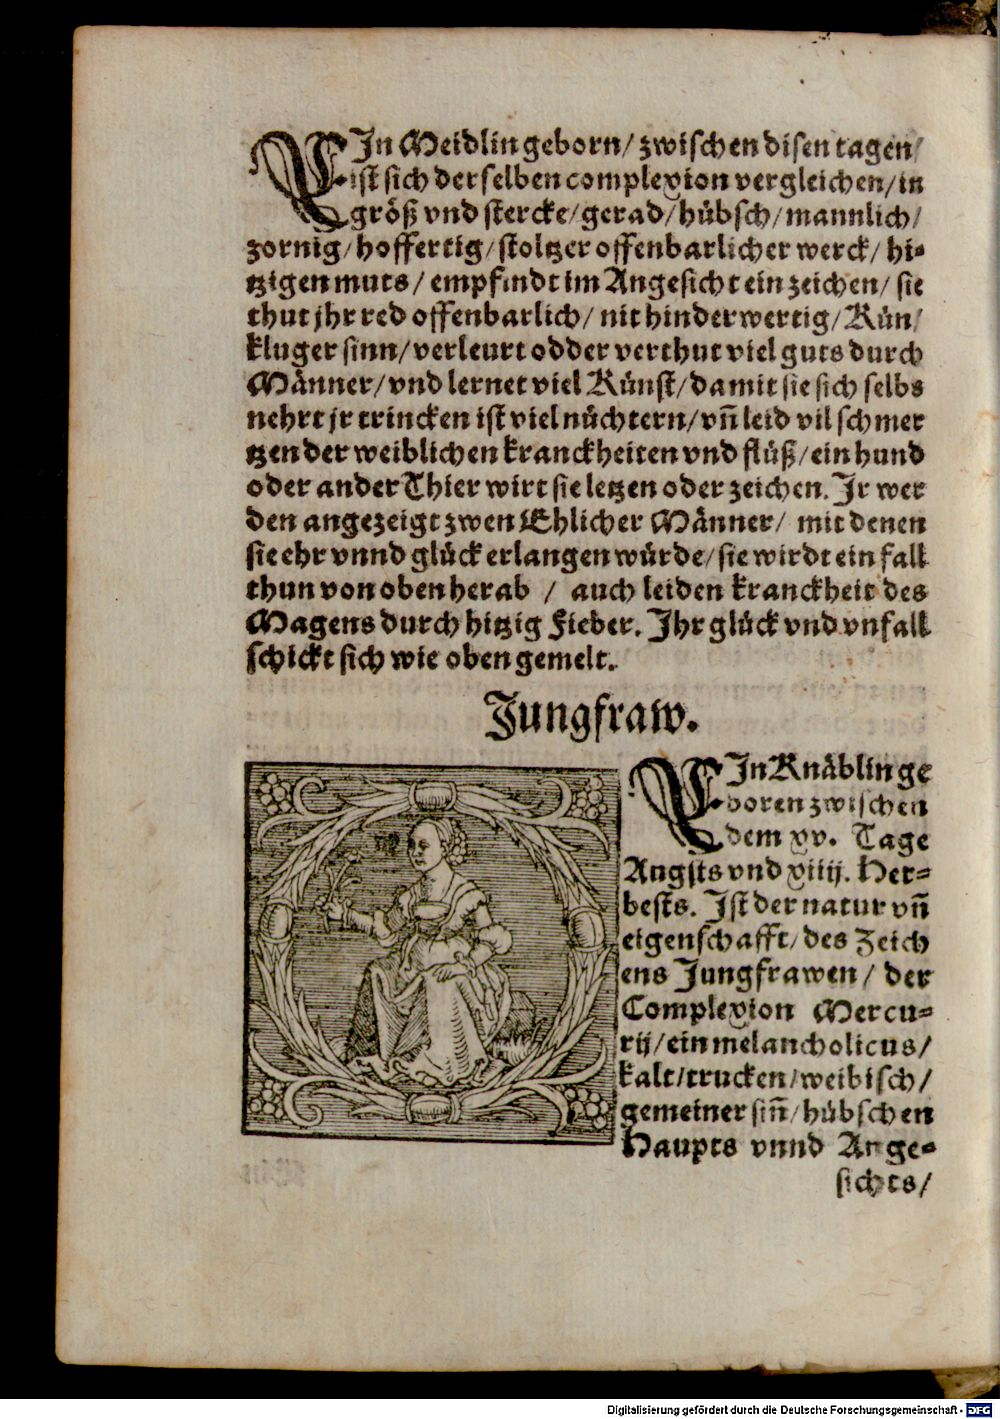 EIn Meidlin geborn/ zwischen disen tagen/
ist sich der selben complexion vergleichen/ in
größ vnd stercke/ gerad/ hübsch/ mannlich/
zornig/ hoffertig/ stoltzer offenbarlicher werck/ hi-
tzigen muts/ empfindt im Angesicht ein zeichen/ sie
thut jhr red offenbarlich/ nit hinderwertig/ Kün/
kluger sinn/ verleurt odder verthut viel guts durch
Männer/ vnd lernet viel Künst/ damit sie sich selbs
nehrt jr trincken ist viel nüchtern/ vñ leid vil schmer
tzen der weiblichen kranckheiten vnd flüß/ ein hund
oder ander Thier wirt sie letzen oder zeichen. Jr wer
den angezeigt zwen Ehlicher Männer/ mit denen
sie ehr vnnd glück erlangen würde/ sie wirdt ein fall
thun von oben herab / auch leiden kranckheit des
Magens durch hitzig Fieber. Ihr glück vnd vnfall
schickt sich wie oben gemelt.
Jungfraw.
EIn Knäblin ge
boren zwischen
dem xv. Tage
Augsts vnd xiiij. Her-
bests. Ist der natur vñ
eigenschafft/ des Zeich
ens Jungfrawen/ der
Complexion Mercu-
rij/ ein melancholicus/
kalt/ trucken/ weibisch/
gemeiner siñ/ hübschen
Haupts vnnd Ange-
sichts/
Digitalisierung gefördert durch die Deutsche Forschungsgemeinschaft - DFG